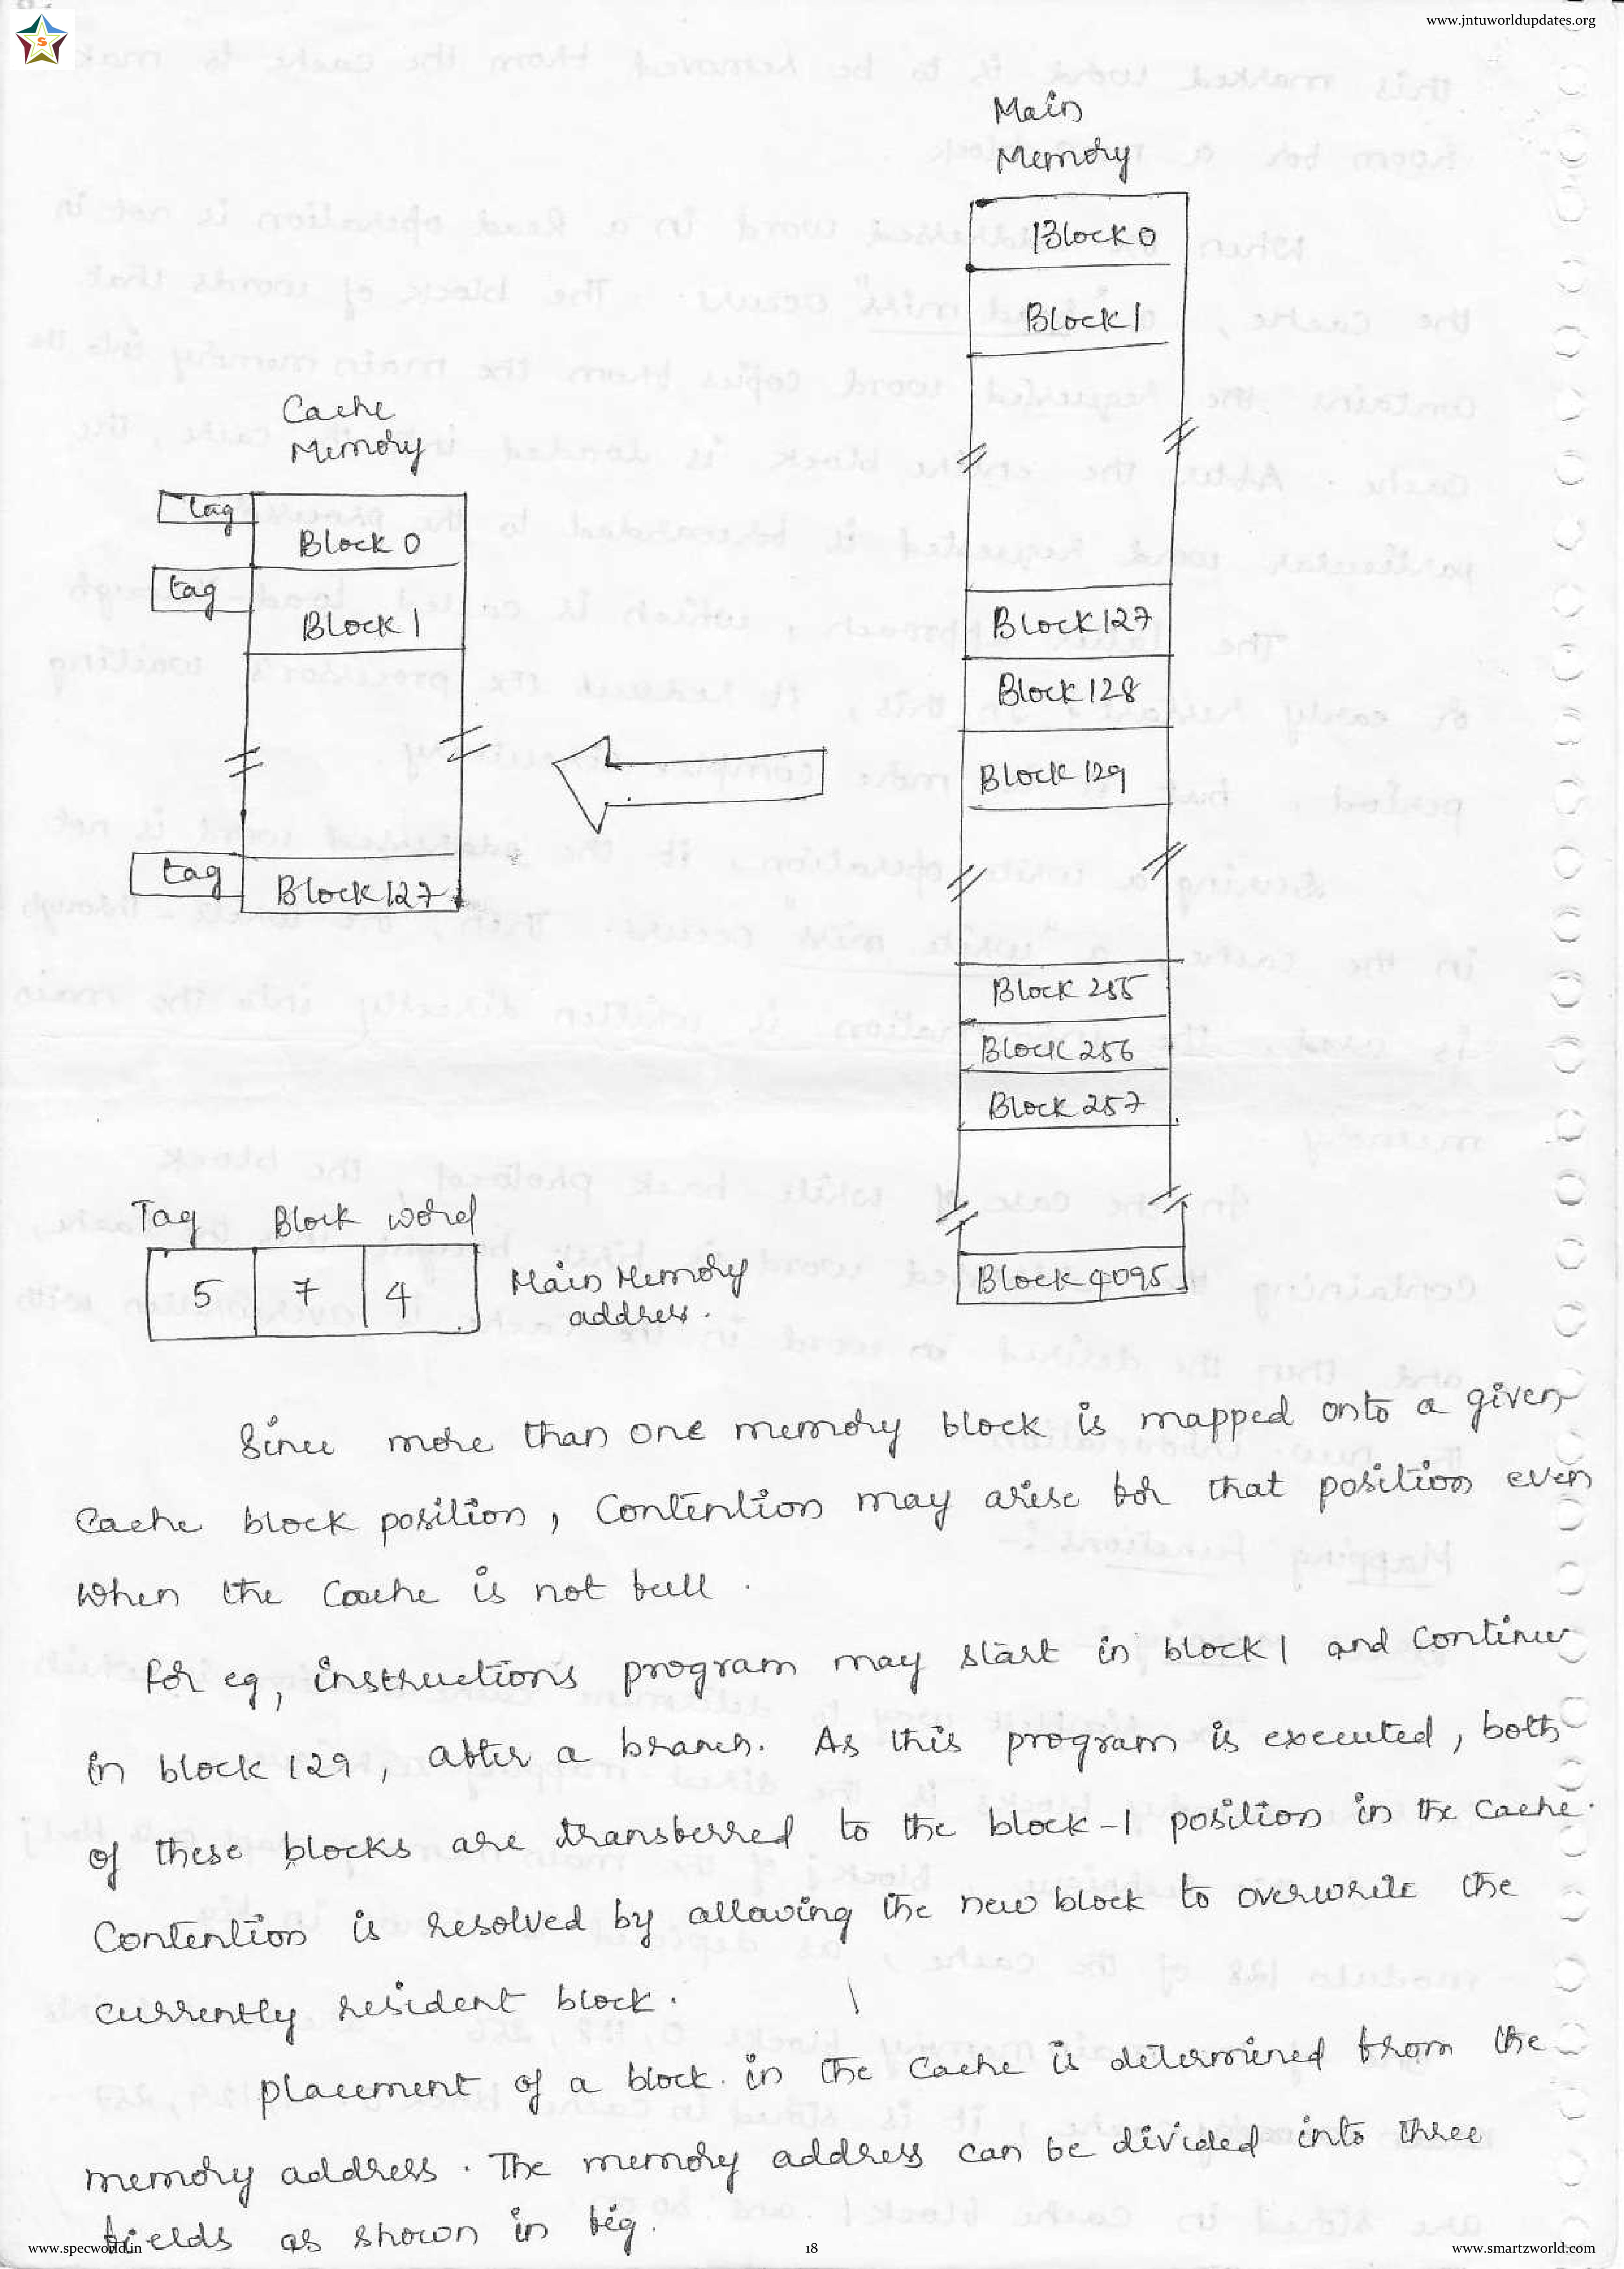 www.jntuworldupdates.org
S
Main
Memory
Block 0
Block 1
Cache
Memory
tag
Block 0
tag
Block 1
Block 127
Block 128
Block 129
tag
Block 127
Block 255
Block 256
Block 257
Tag Block word
5 7 4
Main Memory
address.
Block 4095
Since more than one memory block is mapped onto a given
Cache block position, Contention may arise for that position even
when the Cache is not full.
For eg, instructions program may start in block 1 and Continue
in block 129, after a branch. As this program is executed, both
of these blocks are transferred to the block-1 position in the Cache.
Contention is resolved by allowing the new block to overwrite the
currently resident block.
placement of a block in the Cache is determined from the
memory address. The memory address can be divided into three
fields as shown in fig.
www.specworld.in
18
www.smartzworld.com